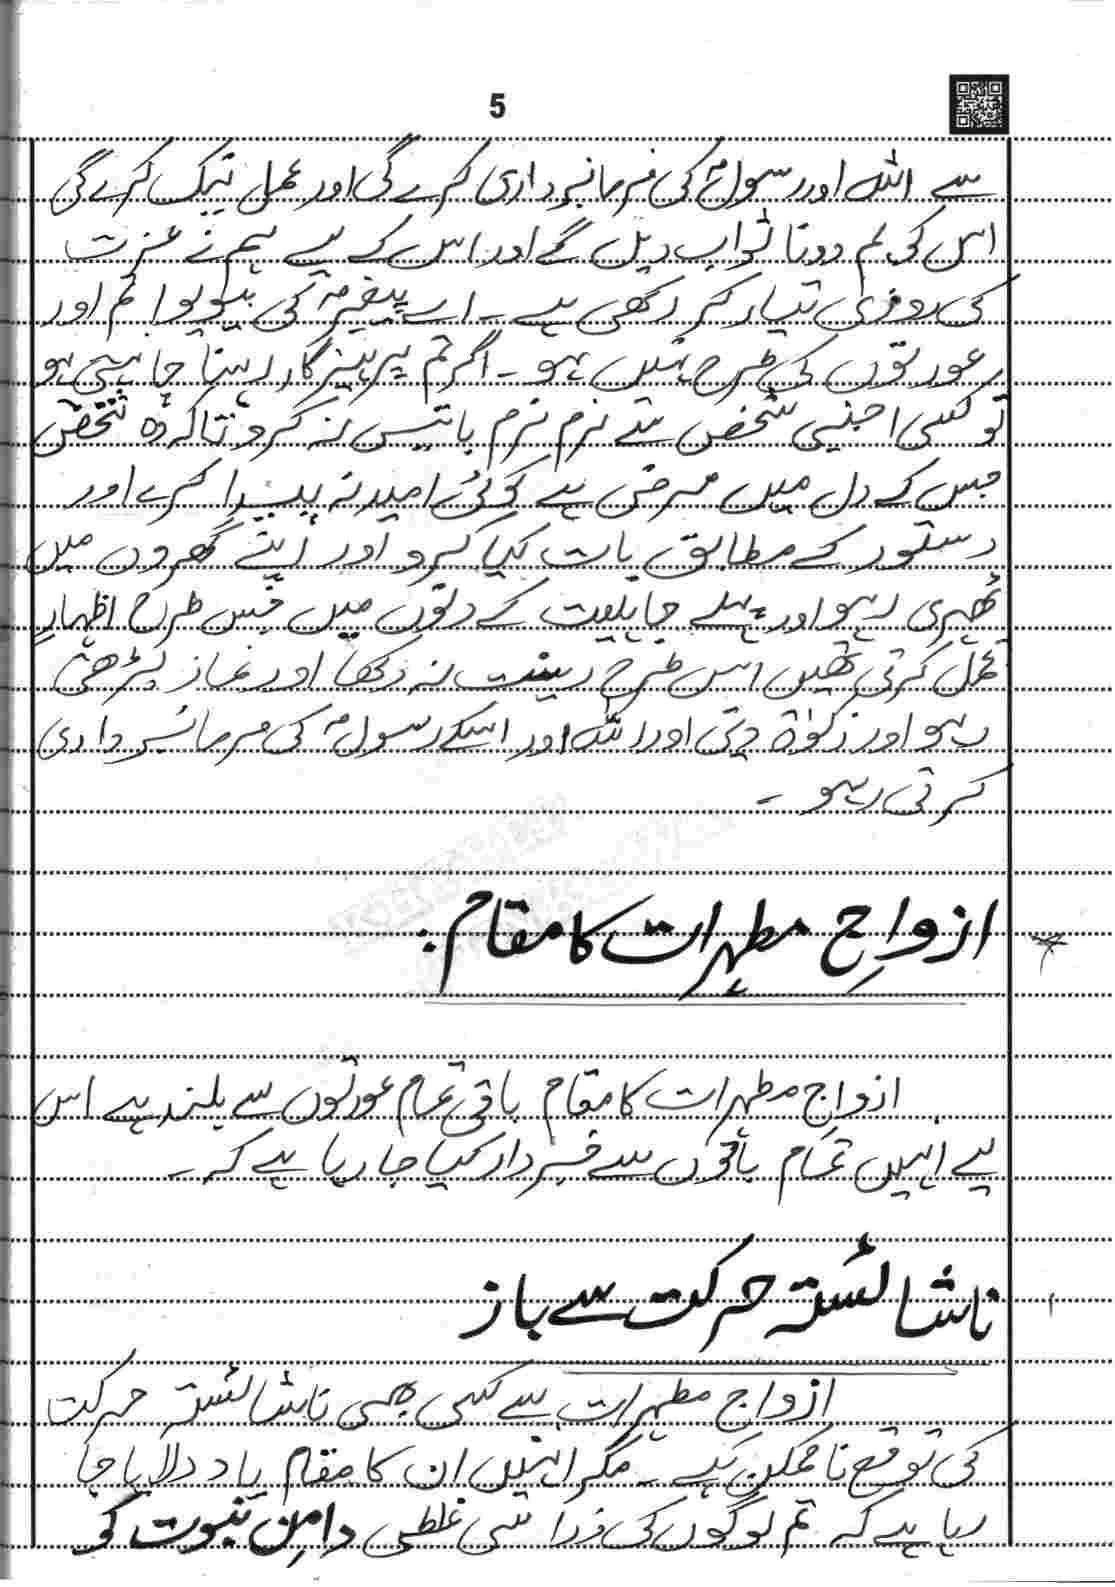 5
سے اللہ اور رسولؐ کی فرمانبرداری کرے گی اور عمل نیک کرے گی
اس کی ہم دونا ثواب دیں گے اور اس کے لیے ہم نے عزت
کی روزی تیار کر رکھی ہے۔ اے پیغمبرؐ کی بیویو! تم اور
عورتوں کی طرح نہیں ہو۔ اگر تم پرہیزگار رہنا چاہتی ہو
تو کسی اجنبی شخص سے نرم نرم باتیں نہ کرو تاکہ وہ شخص
جس کے دل میں مرض ہے کوئی امید نہ پیدا کرے اور
دستور کے مطابق بات کیا کرو اور اپنے گھروں میں
ٹھہری رہو اور پہلے جاہلیت کے دنوں میں جس طرح اظہارِ
تجمل کرتی تھیں اس طرح زینت نہ دکھا اور نماز پڑھتی
رہو اور زکوٰۃ دیتی اور اللہ اور اسکے رسولؐ کی فرمانبرداری
کرتی رہو۔
ازواجِ مطہرات کا مقام:
ازواج مطہرات کا مقام باقی تمام عورتوں سے بلند ہے اس
لیے انہیں تمام باتوں سے خبردار کیا جا رہا ہے کہ۔
۱ ناشائستہ حرکت سے باز
ازواج مطہرات سے کسی بھی ناشائستہ حرکت
کی توقع ناممکن ہے۔ مگر انہیں ان کا مقام یاد دلایا جا
رہا ہے کہ تم لوگوں کی ذرا سی غلطی دامنِ نبوت کو